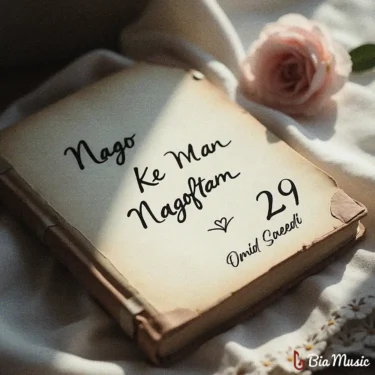 Nago
Ke Man
Nagoftam
29
Omid Saeedi
Bia Music